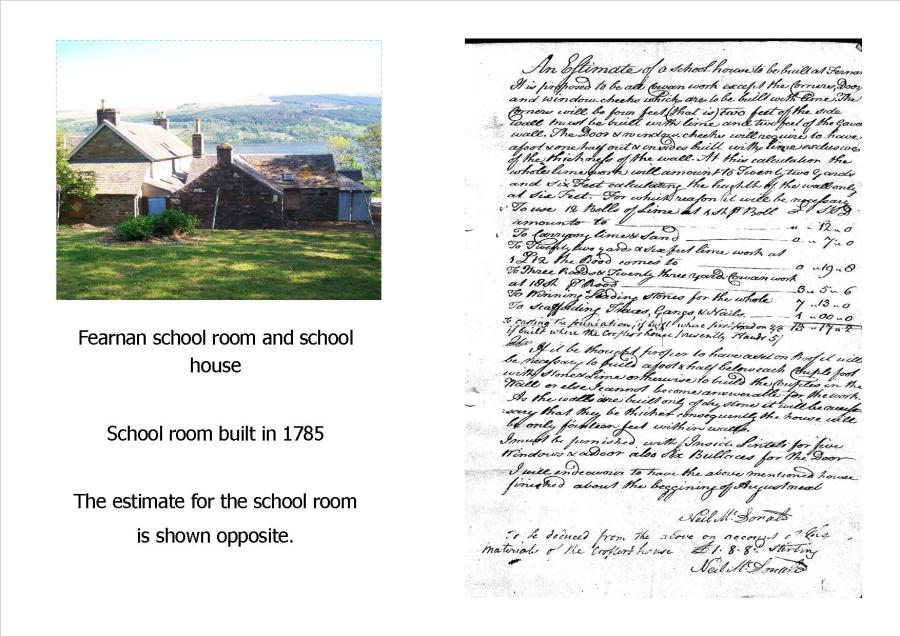 Fearnan school room and school
house
School room built in 1785
The estimate for the school room
is shown opposite.
An Estimate of a school house to be built at
It is proposed to be all Cowan work except the Corners, Door
and window cheeks which are to be built with lime. The
Corners will be four feet (that is) two feet of the side
wall must be built with lime and two feet of the
wall. The Door & window cheeks will require to have
a foot & one half out & insides built with lime exclusive
of the thickness of the wall. At this calculation the
whole lime work will amount to Twenty two Yards
and six Feet calculating the height of the wall only
at six Feet. For which reason it will be necessary
To use 12 Bolls of Lime at 1 sh P Boll
amounts to 12 - 0
To Carrying lime & Sand 7 - 0
To Twenty two yards & six feet lime work at
the Rood comes to 0 - 19 - 8
To Three Roods & Twenty three yard Cowan work
at 18sh P Rood 3 - 5 - 6
To Winning & Leading Stones for the whole 7 - 13 - 0
To Scaffolding & Nails 1 - 00 - 0
To casting the foundation, if built where
if built where the house presently stands 5/
If it be thought proper to have a roof it will
be necessary to build a foot & half below each Couple foot
with stone & lime or otherwise to build the Couples in the
Wall or else I cannot become answerable for the work.
As the walls are built only of dry stone it will be
sary that they be thicker consequently the house will
be only fourteen feet within walls.
I must be furnished with Inside Lintels for five
Windows & a Door also six for the Door
I will endeavour to have the above mentioned house
finished about the beggining of August next
Neil McDonald
To be deduced from the above on account of the
materials of the house £1 - 8 - 8 Sterling
Neil McDonald